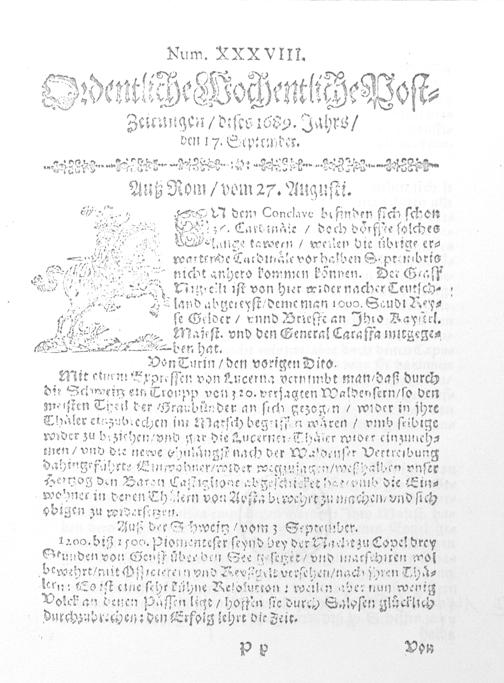 Num. XXXVIII.
Ordentliche Wochentliche Post-
Zeitungen / dises 1689. Jahrs /
den 17. September.
Auß Rom / vom 27. Augusti.
IN dem Conclave befinden sich schon
Cardinäle / doch dörffte solches
lange tawern / weilen die übrige er-
wartende Cardinäle vor halben Septembris
nicht anhero kommen können. Der Graff
ist von hier wider nacher Teutsch-
land abgereyst / deme man 1000. Scudi Rey-
se Gelder / vnnd Brieffe an Ihro Kayserl.
Majest. vnd den General Caraffa mitgege-
ben hat.
Von Turin / den vorigen Dito.
Mit einem Expressen von Lucerna vernimbt man / daß durch
die Schweitz ein Troupp von 320. verjagten Waldensern / so den
meisten Theil der Graubünder an sich gezogen / wider in jhre
Thäler einzubrechen im Marsch begriffen wären / vmb selbige
wider zu beziehen / vnd gar die Lucerner-Thäler wider einzuneh-
men / vnd die newe ohnlängst nach der Waldenser Vertreibung
dahingeführte Einwohner / wider wegzujagen / weßhalben vnser
Hertzog den Baron Castiglione abgeschicket hat / vmb die Ein-
wohner in denen Thälern von Aosta bewehrt zu machen / vnd sich
obigen zu widersetzen.
Auß der Schweitz / vom 3. September.
1200. biß 1500. Piemonteser seynd bey der Nacht zu Copet drey
Stunden von Genff über den See gesetzet / vnd marschiren wol
bewehrt / mit Officierern vnd versehen / nach jhren Thä-
lern: Es ist eine sehr kühne Resolution: weilen aber nun wenig
Volck an denen Pässen ligt / hoffen sie durch Savoyen glücklich
durchzubrechen: den Erfolg lehrt die Zeit.
P p Von